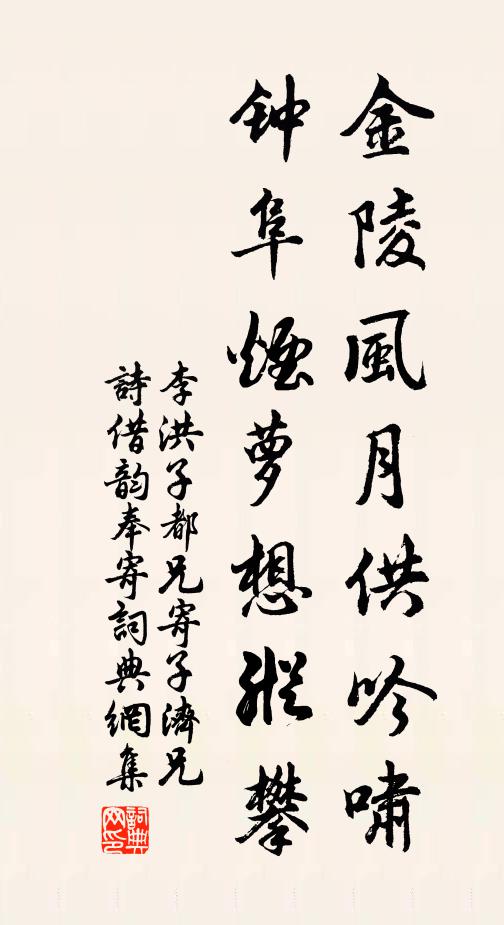 金陵風月供吟嘯
钟阜煙夢想縱攀
李洪子都兄寄子濟兄
詩借韵奉寄詞典網集
詞典网印